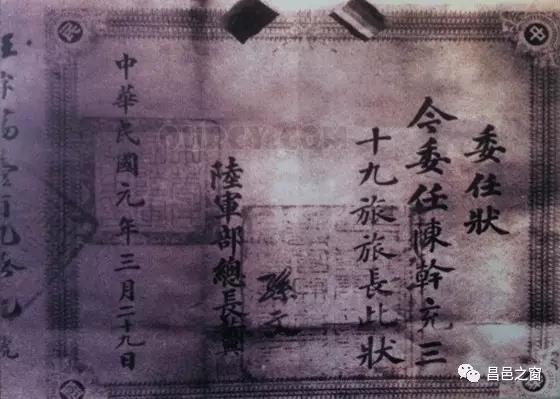 委任狀
令委任陳幹充三
十九旅旅長此狀
孫文
陸軍部總長黃興
中華民國元年三月二十九日
OURCY.COM
昌邑之窗